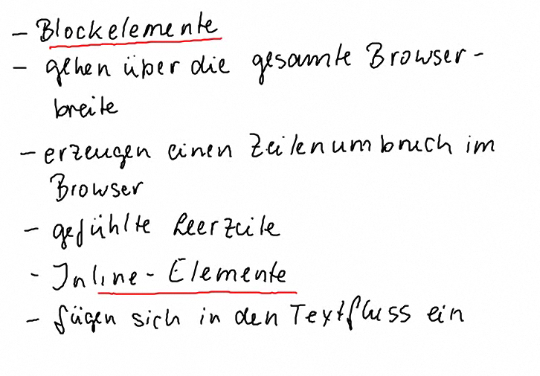 - Blockelemente
- gehen über die gesamte Browser-
breite
- erzeugen einen Zeilenumbruch im
Browser
- gefühlte Leerzeile
- Inline-Elemente
- fügen sich in den Textfluss ein